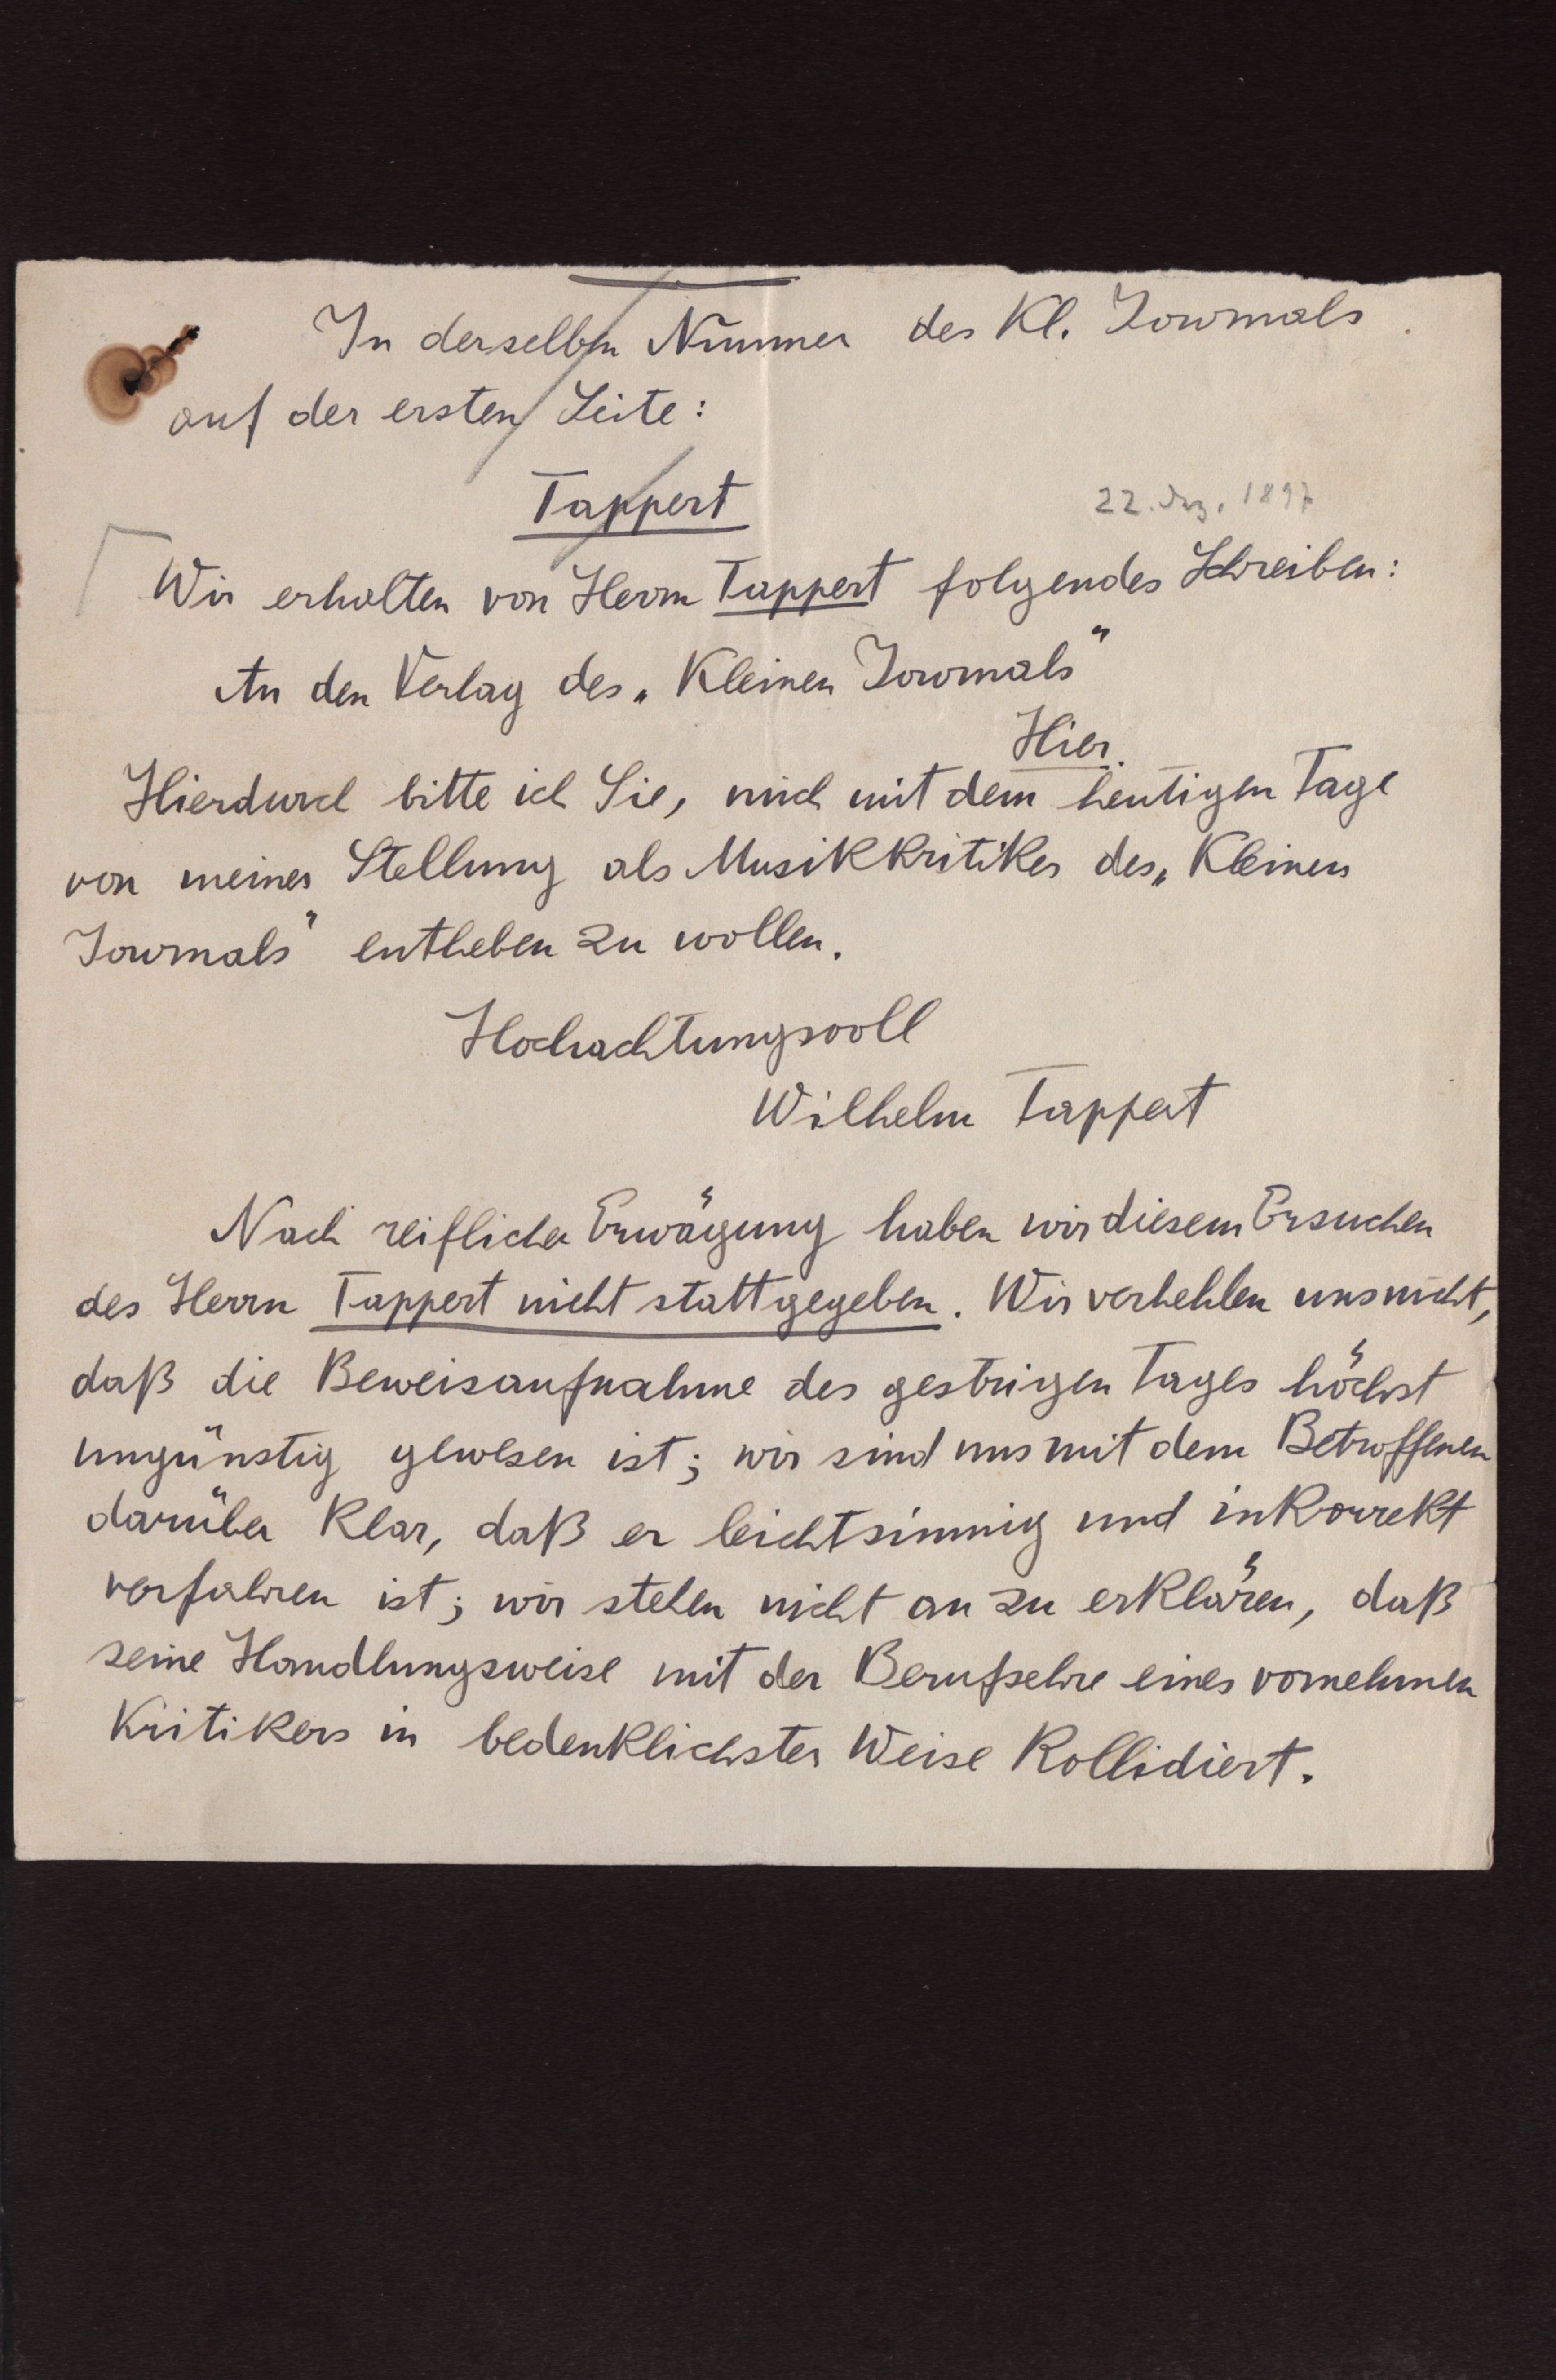 In derselben Nummer des Kl. Journals
auf der ersten Seite:
Tappert
22. Dez. 1897
Wir erhalten von Herrn Tappert folgendes Schreiben:
An den Verlag des „Kleinen Journals"
Hier.
Hierdurch bitte ich Sie, mich mit dem heutigen Tage
von meiner Stellung als Musikkritiker des „Kleinen
Journals" entheben zu wollen.
Hochachtungsvoll
Wilhelm Tappert
Nach reiflicher Erwägung haben wir diesem Ersuchen
des Herrn Tappert nicht stattgegeben. Wir verhehlen uns nicht,
daß die Beweisaufnahme des gestrigen Tages höchst
ungünstig gewesen ist; wir sind uns mit dem Betroffenen
darüber klar, daß er leichtsinnig und inkorrekt
verfahren ist; wir stehen nicht an zu erklären, daß
seine Handlungsweise mit der Berufsehre eines vornehmen
Kritikers in bedenklichster Weise kollidiert.